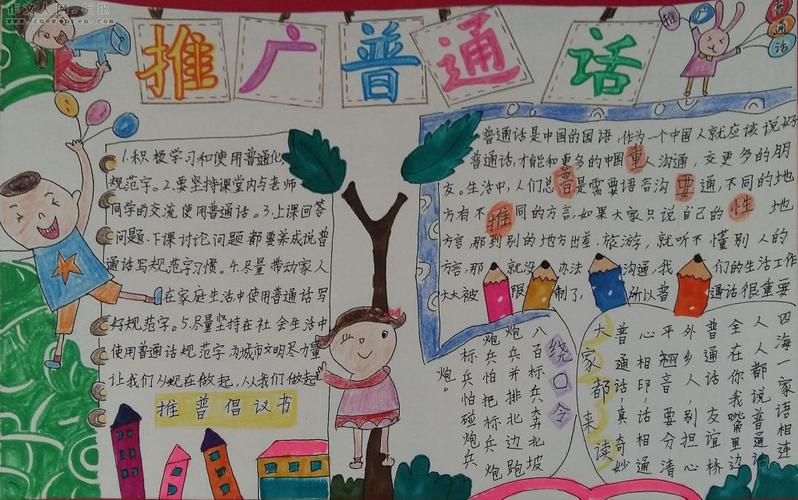 www.zuowenren.com
推广普通话
推
广
普通话
1.积极学习和使用普通化、
规范字。2.要坚持课堂内与老师
同学的交流使用普通话。3.上课回答
问题、下课讨论问题都要养成说普
通话写规范字习惯。4.尽量带动家人
在家庭生活中使用普通话写
好规范字。5.尽量坚持在社会生活中
使用普通话规范字为城市文明尽力量
让我们从现在做起,从我们做起
推普倡议书
普通话是中国的国语,作为一个中国人就应该说好
普通话,才能和更多的中国重人沟通,交更多的朋
友。生活中,人们总普是需要语言沟要通,不同的地
方有不推同的方言,如果大家只说自己的性地
方言,那到别的地方出差、旅游,就听不懂别人的
方言,那就没办法沟通,我们的生活工作
大大被限制了,所以普通话很重要
绕口令
八百标兵奔北坡
炮兵并排北边跑
炮兵怕把标兵
标兵怕碰炮兵
炮。
四海一家语相连
人人都说普通话
全在你我嘴里边
普通话,友谊桥
外乡人,别担心
平翘音要分清
心相印,话相通
普通话,真奇妙
大家都来读